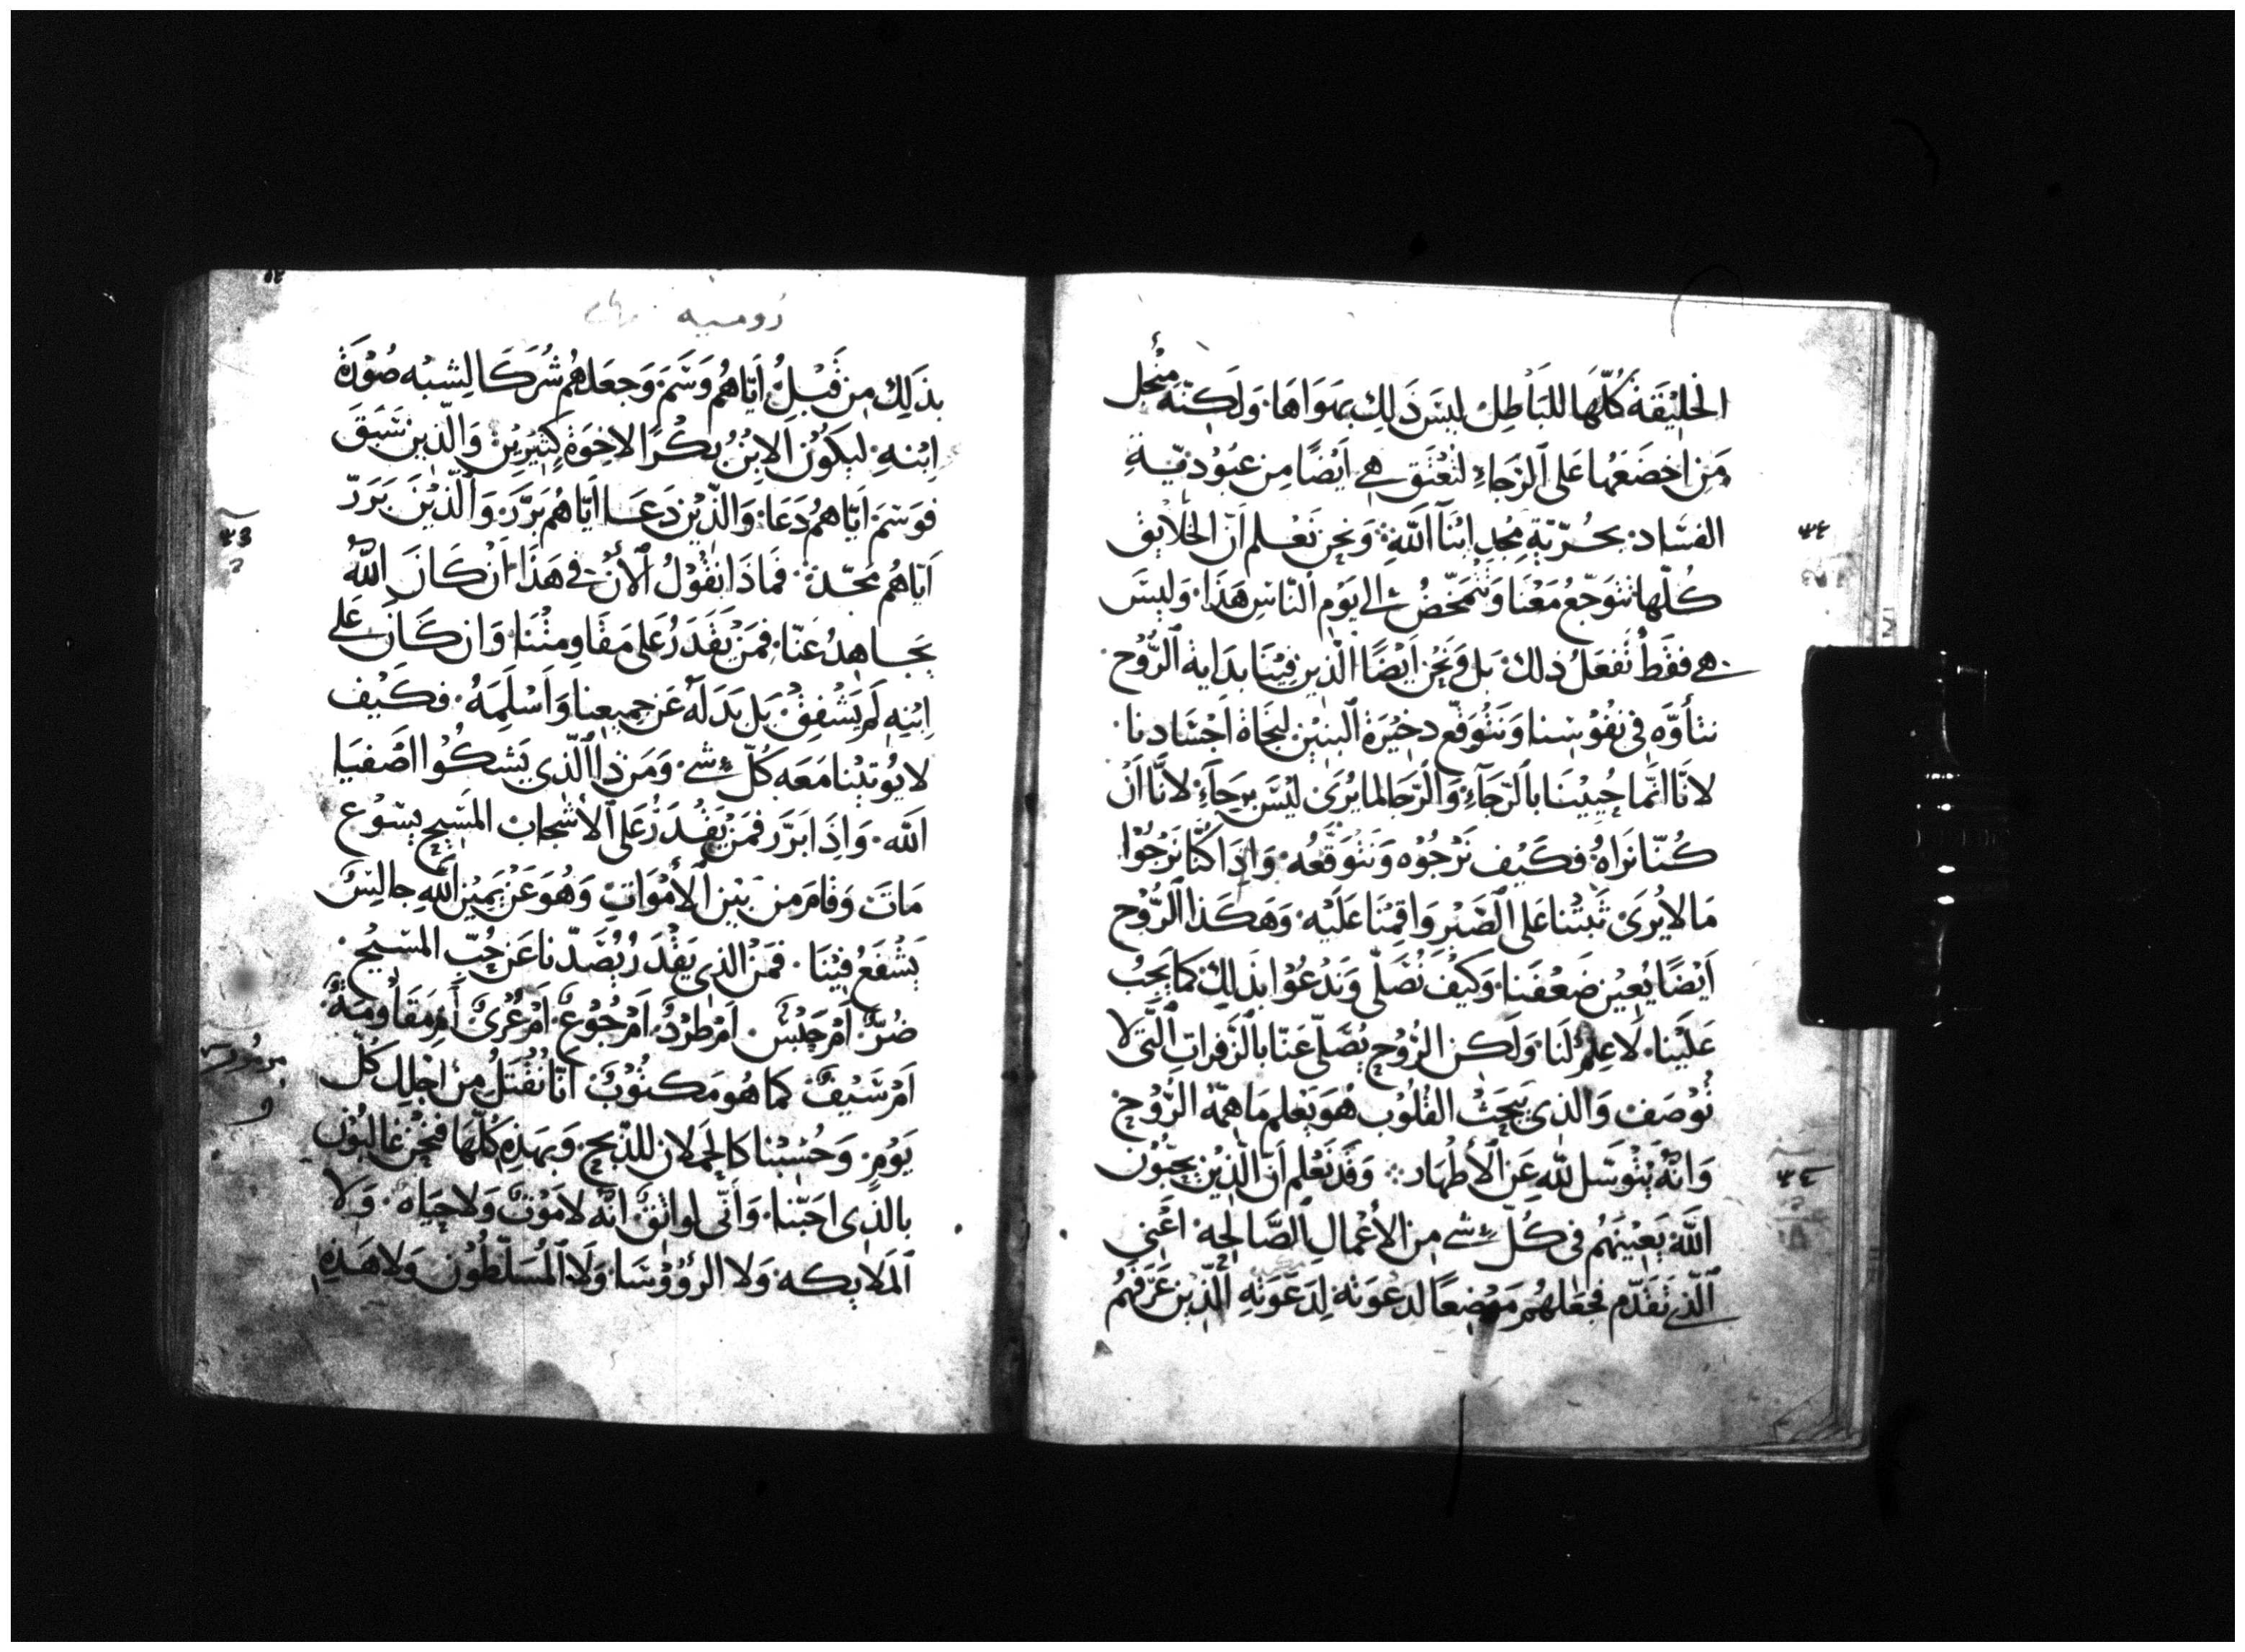 الخَلِيْقَة كُلّهَا للبَاطِلْ لَيسَ ذَلِكَ بهَوَاهَا٠ وَلَكِنّهُ مِنْ أجل
مَن اخضَعَهَا عَلى ٱلرّجَاءِ لتُعْتَق هي اَيْضًا مِن عبُوْديّةِ
الفسَاد٠ بحُرّيّةِ مَجدِ ابْنَآ ٱللّهِ٠ وَنحن نَعْلم اَنّ الخَلايق
كُلّها تتوَجّعُ مَعْنَا وَتتمخّضُ الى يَوْم ٱلنّاسِ هَذَا٠ وَلَيْسَ
هي فقَطْ تَفعَلُ ذلك٠ بَل وَنَحْنُ اَيْضًا الّذِين فِيْنَا بدَايةُ ٱلرُّوْح
نتأوَّه فى نفُوْسِنا وَنتَوَقّع دخِيْرَة ٱلبنِيْن لنجَاة اَجْسَادنا٠
لانّا انّما حُيِيْنَا بالرّجَآءِ٠ وَالرّجَا لمَا يُرَىْ لَيْسَ برَجآءٍ٠ لانّا اَنْ
كُنّا نَرَاهُ٠ فكَيْف نَرْجُوْه وَنتَوَقّعُه٠ وَاِذَا كُنّا نَرْجُوْا
مَا لا يُرَىْ ثَبَتْنا عَلى ٱلصّبْر وَاقمْنَا عَلَيْه٠ وَهَكَذا ٱلرُّوْح
اَيْضًا يُعِيْن ضَعْفَنا٠ وَكَيْفَ نُصَلّى وَندْعُوْا بذَلِكَ كمَا يَجبُ
عَلَيْنا٠ لا عِلمْ لَنا٠ وَلَكن الرُّوْح يُصَلّى عَنّا بالزّفرَاتِ ٱلّتى لا
تُوْصَف٠ وَالذى يبحَثْ القُلُوْب هُوَ يَعْلم مَا همّة الرُّوْح
وَانّهُ يتْوَسّل للّه عَن ٱلأطْهَار ٠ وَقَد نَعْلم اَن الّذِيْن يحبّوْن
اللّهَ يَعِيْنَهُم فى كُلّ شى من الاُعْمالِ ٱلصَّالِحة٠ اَعْنى
ٱلّذى تَقَدّم فجَعَلهُم مَوْضِعًا لدعْوَته لِدَعْوَتِهِ ٱلّذِيْن عَرَفهُم
رُوميه
بذَلِكَ مِن قَبْلِ٠ ايّاهُم وَسَمَ٠ وَجعَلهُم شُرَكَا لِشبْه صُوْرَة
اِبْنهِ٠ ليَكُوْن ٱلابْنُ بكْرًا لاخِوَة كثِيْريْن٠ وَالّذِيْن سَبَقَ
فوَسَمَ ايّاهُم دَعَا٠ وَالّذِيْن دَعَا اَيّاهُم بَرَّرَ٠ وَٱلّذِيْنَ بَرَرّ
اَيّاهُم مَجّدَ٠ فمَاذَا نقُوْلُ ٱلأنْ في هَذَا٠ اَنْ كَانَ اللّهُ
يجَاهِدُ عَنّا٠ فمَنْ يَقْدَرُ عَلى مَقَاومتْنَا٠ وَان كَانَ عَلى
اِبْنه لَم يَشْفِقْ٠ بَل بَدَلَهُ عَن جمِيْعِنا وَاَسْلَمَهُ٠ فكَيْف
لا يُوْتيْنا مَعَه كُلّ شى٠ وَمَن ذا الّذى يَشكُوْا اصْفيَا
اللّه٠ وَاِذَا بَرّرَ فمَنْ يَقْدَرُ عَلى ٱلأشْجاب المَسِيْح يسُوْع
مَاتَ وَقامَ من بَيْن ٱلأمْوَاتِ وَهُوَ عَنْ يَمِيْن اللّهِ جالِسٌ
يَشْفَعُ فِيْنَا٠ فمَن الذى يَقْدَرُ يُصَدّنا عَن حُبّ المَسيْح٠
ضُرٌّ اَمْ حَبْسٌ٠ اَمْ طَرْدٌ٠ اَمْ جُوْعٌ٠ اَمْ عُرْىٌ اَمْ مَقَاوَمَةٌ٠
اَمْ سَيْفٌ كما هُو مَكتُوْبٌ انّا نُقْتَلُ مِنْ اَجْلِكَ كُلّ
يَوْمٍ٠ وَحُسِبْنا كالحملان للذّبح٠ وَبهَذِه كُلّهَا فنَحْنُ غالبُوْن
بالذى احَبّنا٠ وَاَنّى لواثقٌ انّه لا مَوْتٌ وَلا حيَاه٠ وَلا
ٱلمَلايكه٠ وَلا الرُوُوْسَا٠ وَلا ٱلمُسَلّطُوْن٠ وَلا هَذِهِ